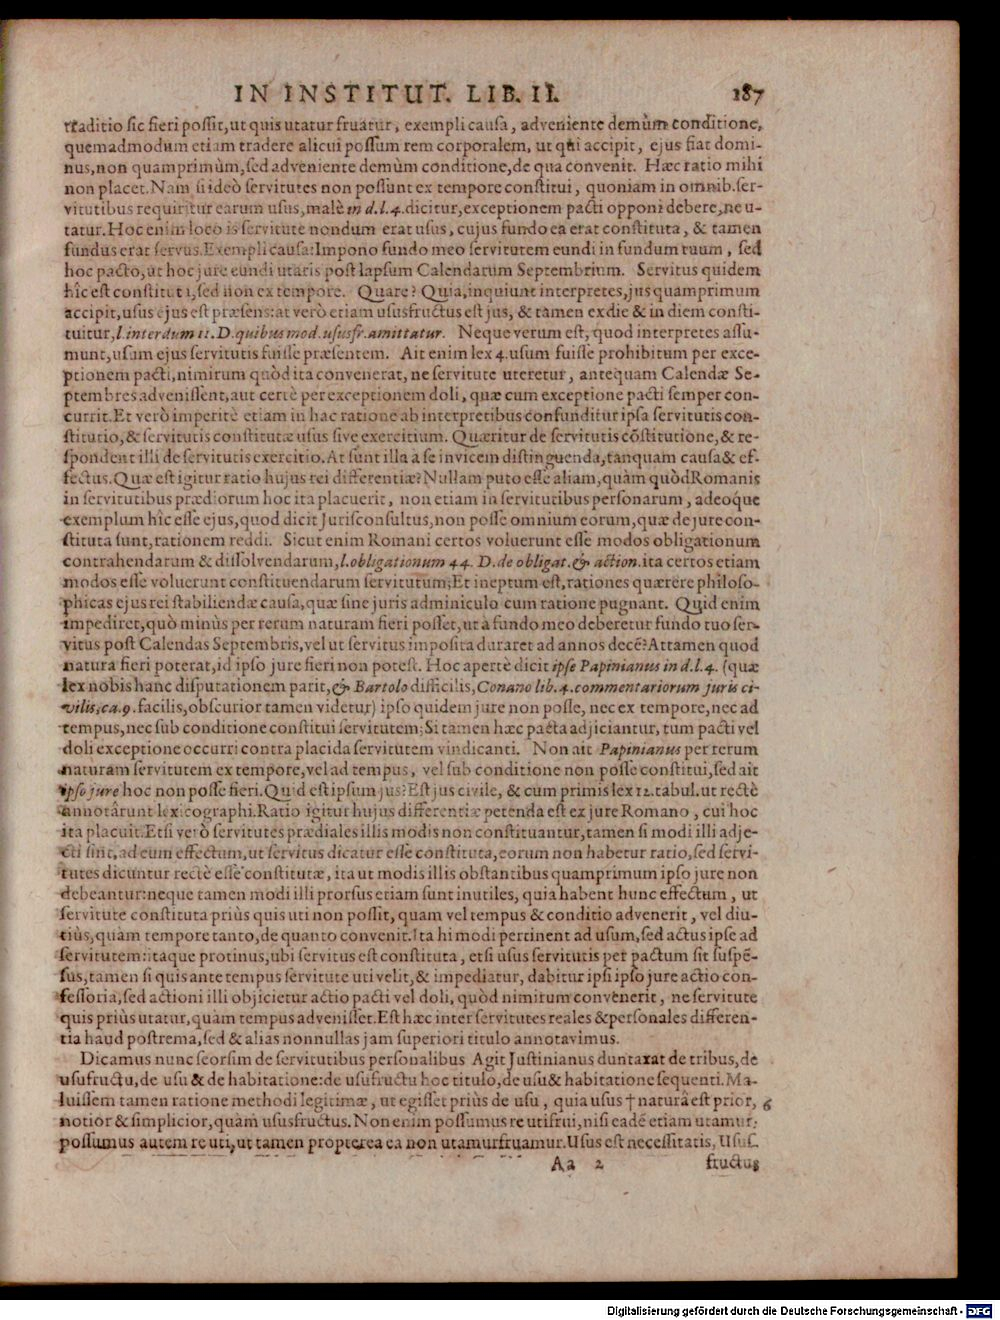 IN INSTITUT. LIB. II. 187
traditio sic fieri possit, ut quis utatur fruatur, exempli causa, adveniente demùm conditione,
quemadmodum etiam tradere alicui possum rem corporalem, ut qui accipit, ejus fiat domi-
nus, non quamprimùm, sed adveniente demùm conditione, de qua convenit. Hæc ratio mihi
non placet. Nam si ideò servitutes non possunt ex tempore constitui, quoniam in omnib. ser-
vitutibus requiritur earum usus, malè in d.l.4. dicitur, exceptionem pacti opponi debere, ne u-
tatur. Hoc enim loco is servitute nondum erat usus, cujus fundo ea erat constituta, & tamen
fundus erat servus. Exempli causa: Impono fundo meo servitutem eundi in fundum tuum, sed
hoc pacto, ut hoc jure eundi utaris post lapsum Calendarum Septembrium. Servitus quidem
hîc est constituta, sed non ex tempore. Quare? Quia, inquiunt interpretes, jus quamprimum
accipit, usus ejus est præsens: at verò etiam ususfructus est jus, & tamen ex die & in diem consti-
tuitur, l. interdum 11. D. quibus mod. ususfr. amittatur. Neque verum est, quod interpretes assu-
munt, usum ejus servitutis fuisse præsentem. Ait enim lex 4. usum fuisse prohibitum per exce-
ptionem pacti, nimirum quòd ita convenerat, ne servitute uteretur, antequam Calendæ Se-
ptembres advenissent, aut certè per exceptionem doli, quæ cum exceptione pacti semper con-
currit. Et verò imperitè etiam in hac ratione ab interpretibus confunditur ipsa servitutis con-
stitutio, & servitutis constitutæ usus sive exercitium. Quæritur de servitutis cōstitutione, & re-
spondent illi de servitutis exercitio. At sunt illa a se invicem distinguenda, tanquam causa & ef-
fectus. Quæ est igitur ratio hujus rei differentiæ? Nullam puto esse aliam, quàm quòd Romanis
in servitutibus prædiorum hoc ita placuerit, non etiam in servitutibus personarum, adeoque
exemplum hîc esse ejus, quod dicit Jurisconsultus, non posse omnium eorum, quæ de jure con-
stituta sunt, rationem reddi. Sicut enim Romani certos voluerunt esse modos obligationum
contrahendarum & dissolvendarum, l. obligationum 44. D. de obligat. & action. ita certos etiam
modos esse voluerunt constituendarum servitutum; Et ineptum est, rationes quærere philoso-
phicas ejus rei stabiliendæ causa, quæ sine juris adminiculo cum ratione pugnant. Quid enim
impediret, quò minùs per rerum naturam fieri posset, ut à fundo meo deberetur fundo tuo ser-
vitus post Calendas Septembris, vel ut servitus imposita duraret ad annos decē? Attamen quod
natura fieri poterat, id ipso jure fieri non potest. Hoc apertè dicit ipse Papinianus in d.l.4. (quæ
lex nobis hanc disputationem parit, & Bartolo difficilis, Conano lib. 4. commentariorum juris ci-
vilis, ca. 9. facilis, obscurior tamen videtur) ipso quidem jure non posse, nec ex tempore, nec ad
tempus, nec sub conditione constitui servitutem; Si tamen hæc pacta adjiciantur, tum pacti vel
doli exceptione occurri contra placida servitutem vindicanti. Non ait Papinianus per rerum
naturam servitutem ex tempore, vel ad tempus, vel sub conditione non posse constitui, sed ait
ipso jure hoc non posse fieri. Quid est ipsum jus? Est jus civile, & cum primis lex 12. tabul. ut rectè
annotârunt lexicographi. Ratio igitur hujus differentiæ petenda est ex jure Romano, cui hoc
ita placuit. Etsi verò servitutes prædiales illis modis non constituantur, tamen si modi illi adje-
cti sint, ad eum effectum, ut servitus dicatur esse constituta, eorum non habetur ratio, sed servi-
tutes dicuntur rectè esse constitutæ, ita ut modis illis obstantibus quamprimum ipso jure non
debeantur: neque tamen modi illi prorsus etiam sunt inutiles, quia habent hunc effectum, ut
servitute constituta priùs quis uti non possit, quam vel tempus & conditio advenerit, vel diu-
tiùs, quàm tempore tanto, de quanto convenit. Ita hi modi pertinent ad usum, sed actus ipse ad
servitutem: itaque protinus, ubi servitus est constituta, etsi usus servitutis per pactum sit suspē-
sus, tamen si quis ante tempus servitute uti velit, & impediatur, dabitur ipsi ipso jure actio con-
fessoria, sed actioni illi objicietur actio pacti vel doli, quòd nimirum convenerit, ne servitute
quis priùs utatur, quàm tempus advenisset. Est hæc inter servitutes reales & personales differen-
tia haud postrema, sed & alias nonnullas jam superiori titulo annotavimus.
Dicamus nunc seorsim de servitutibus personalibus Agit Justinianus duntaxat de tribus, de
usufructu, de usu & de habitatione: de usufructu hoc titulo, de usu & habitatione sequenti. Ma-
luissem tamen ratione methodi legitimæ, ut egisset priùs de usu, quia usus † naturâ est prior, 6
notior & simplicior, quàm ususfructus. Non enim possumus re utifrui, nisi eadē etiam utamur:
possumus autem re uti, ut tamen propterea ea non utamurfruamur. Usus est necessitatis, Usus-
Aa 2 fructus
Digitalisierung gefördert durch die Deutsche Forschungsgemeinschaft - DFG